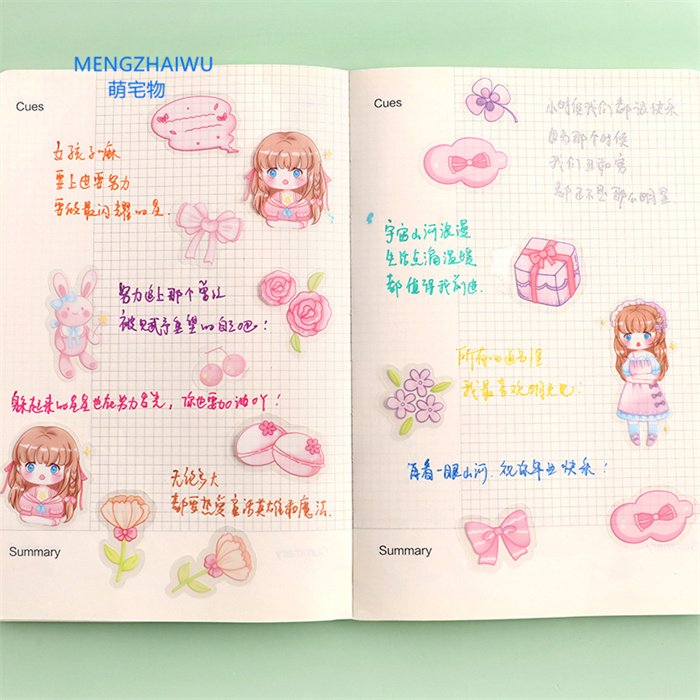 MENGZHAIWU
萌宅物
Cues
女孩子嘛
要上进要努力
要做最闪耀的星.
努力追上那个曾经
被赋予重望的自己吧!
躲起来的星星也在努力发光，你也要加油吖!
无论多大
都要热爱童话英雄和魔法.
Summary
Cues
小时候我们都很快乐
因为那个时候
我们
都不是那么明显
宇宙山河浪漫
生活点滴温暖
都值得我前进.
所有的
我最喜欢明光吧.
再看一眼山河，祝你年年快乐!
Summary